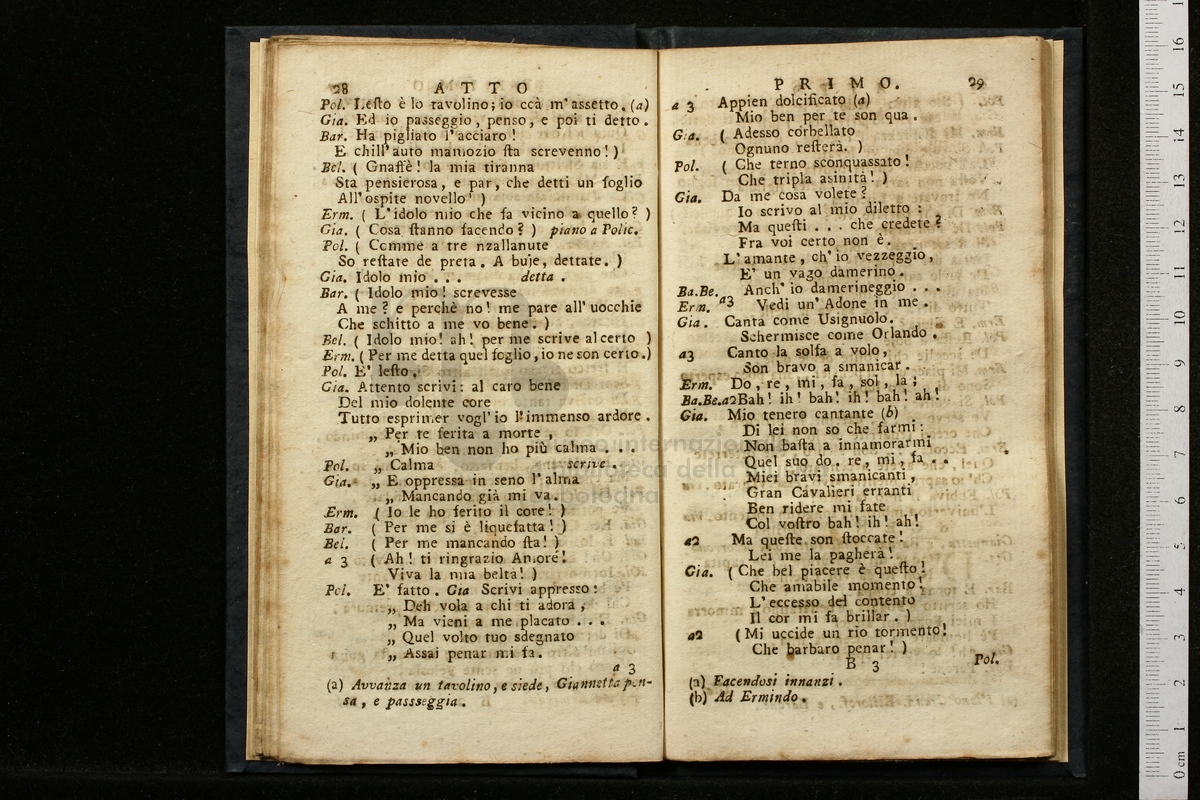 28 ATTO
Pol. Leſto è lo tavolino; io ccà m'assetto. (a)
Gia. Ed io passeggio, penso, e poi ti detto.
Bar. Ha pigliato l'acciaro!
E chill'auto mamozio ſta screvenno!)
Bel. ( Gnaffè! la mia tiranna
Sta pensierosa, e par, che detti un foglio
All'ospite novello! )
Erm. ( L'idolo mio che fa vicino a quello? )
Gia. ( Cosa ſtanno facendo? ) piano a Polic.
Pol. ( Comme a tre nzallanute
So reſtate de preta. A buje, dettate. )
Gia. Idolo mio . . . detta.
Bar. ( Idolo mio! screvesse
A me? e perchè no! me pare all'uocchie
Che schitto a me vo bene. )
Bel. ( Idolo mio! ah! per me scrive al certo )
Erm. ( Per me detta quel foglio, io ne son certo.)
Pol. E' leſto.
Gia. Attento scrivi: al caro bene
Del mio dolente core
Tutto esprimer vogl'io l'immenso ardore.
„ Per te ferita a morte,
„ Mio ben non ho più calma . . .
Pol. „ Calma scrive.
Gia. „ E oppressa in seno l'alma
„ Mancando già mi va.
Erm. ( Io le ho ferito il core! )
Bar. ( Per me si è liquefatta! )
Bel. ( Per me mancando ſta! )
a 3 ( Ah! ti ringrazio Amore!
Viva la mia beltà! )
Pol. E' fatto. Gia Scrivi appresso:
„ Deh vola a chi ti adora,
„ Ma vieni a me placato . . .
„ Quel volto tuo sdegnato
„ Assai penar mi fa.
a 3
(a) Avvanza un tavolino, e siede, Giannetta pen-
sa, e passseggia.
PRIMO. 29
a 3 Appien dolcificato (a)
Mio ben per te son qua.
Gia. ( Adesso corbellato
Ognuno reſterà. )
Pol. ( Che terno sconquassato!
Che tripla asinità! )
Gia. Da me cosa volete?
Io scrivo al mio diletto:
Ma queſti . . . che credete?
Fra voi certo non è.
L'amante, ch'io vezzeggio,
E' un vago damerino.
Ba.Be. Erm. a3 Anch'io damerineggio . . .
Vedi un'Adone in me.
Gia. Canta come Usignuolo.
Schermisce come Orlando.
a3 Canto la solfa a volo,
Son bravo a smanicar.
Erm. Do, re, mi, fa, sol, la;
Ba.Be.a2 Bah! ih! bah! ih! bah! ah!
Gia. Mio tenero cantante (b)
Di lei non so che farmi:
Non baſta a innamorarmi
Quel suo do. re, mi, fa . .
Miei bravi smanicanti,
Gran Cavalieri erranti
Ben ridere mi fate
Col voſtro bah! ih! ah!
a2 Ma queſte son ſtoccate!
Lei me la pagherà!
Gia. ( Che bel piacere è queſto!
Che amabile momento!
L'eccesso del contento
Il cor mi fa brillar. )
a2 ( Mi uccide un rio tormento!
Che barbaro penar! )
B 3 Pol.
(a) Facendosi innanzi.
(b) Ad Ermindo.